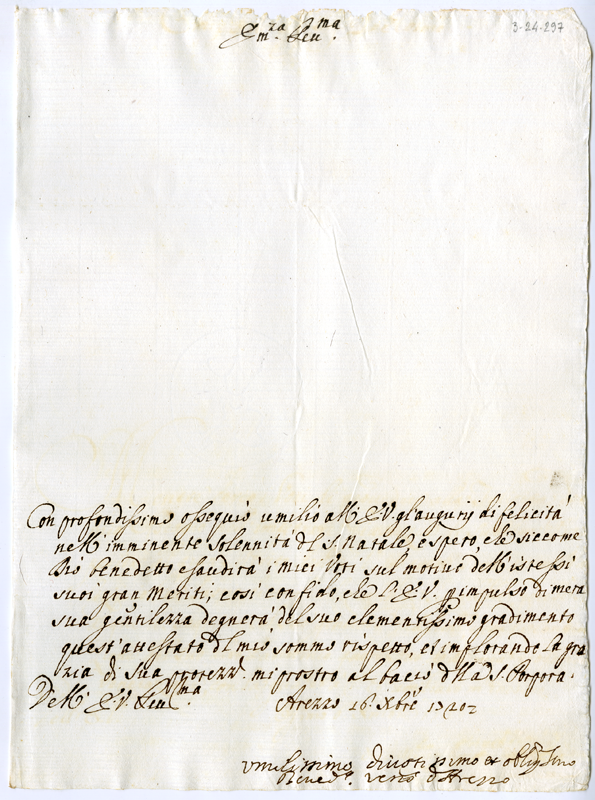 Em.za Reu.ma
3-24-297
Con profondissimo ossequio umilio all' E. V. gl' augurij di felicità
nell' imminente solennità del S. Natale, e spero, che siccome
Dio benedetto esaudirà i miei voti sul motivo dell' istessi
suoi gran Meriti; così confido, che l' E. V. p impulso di mera
sua gentilezza degnerà del suo clementissimo gradimento
quest' attestato del mio sommo rispetto, et implorando la gra
zia di sua protezz.e mi prostro al bacio della S. Porpora.
Dell' E. V. Reu.ma
Arezzo 16. Xbre
Umilissimo diuotissimo et oblig.mo
Bened.o Vesco d'Arezzo